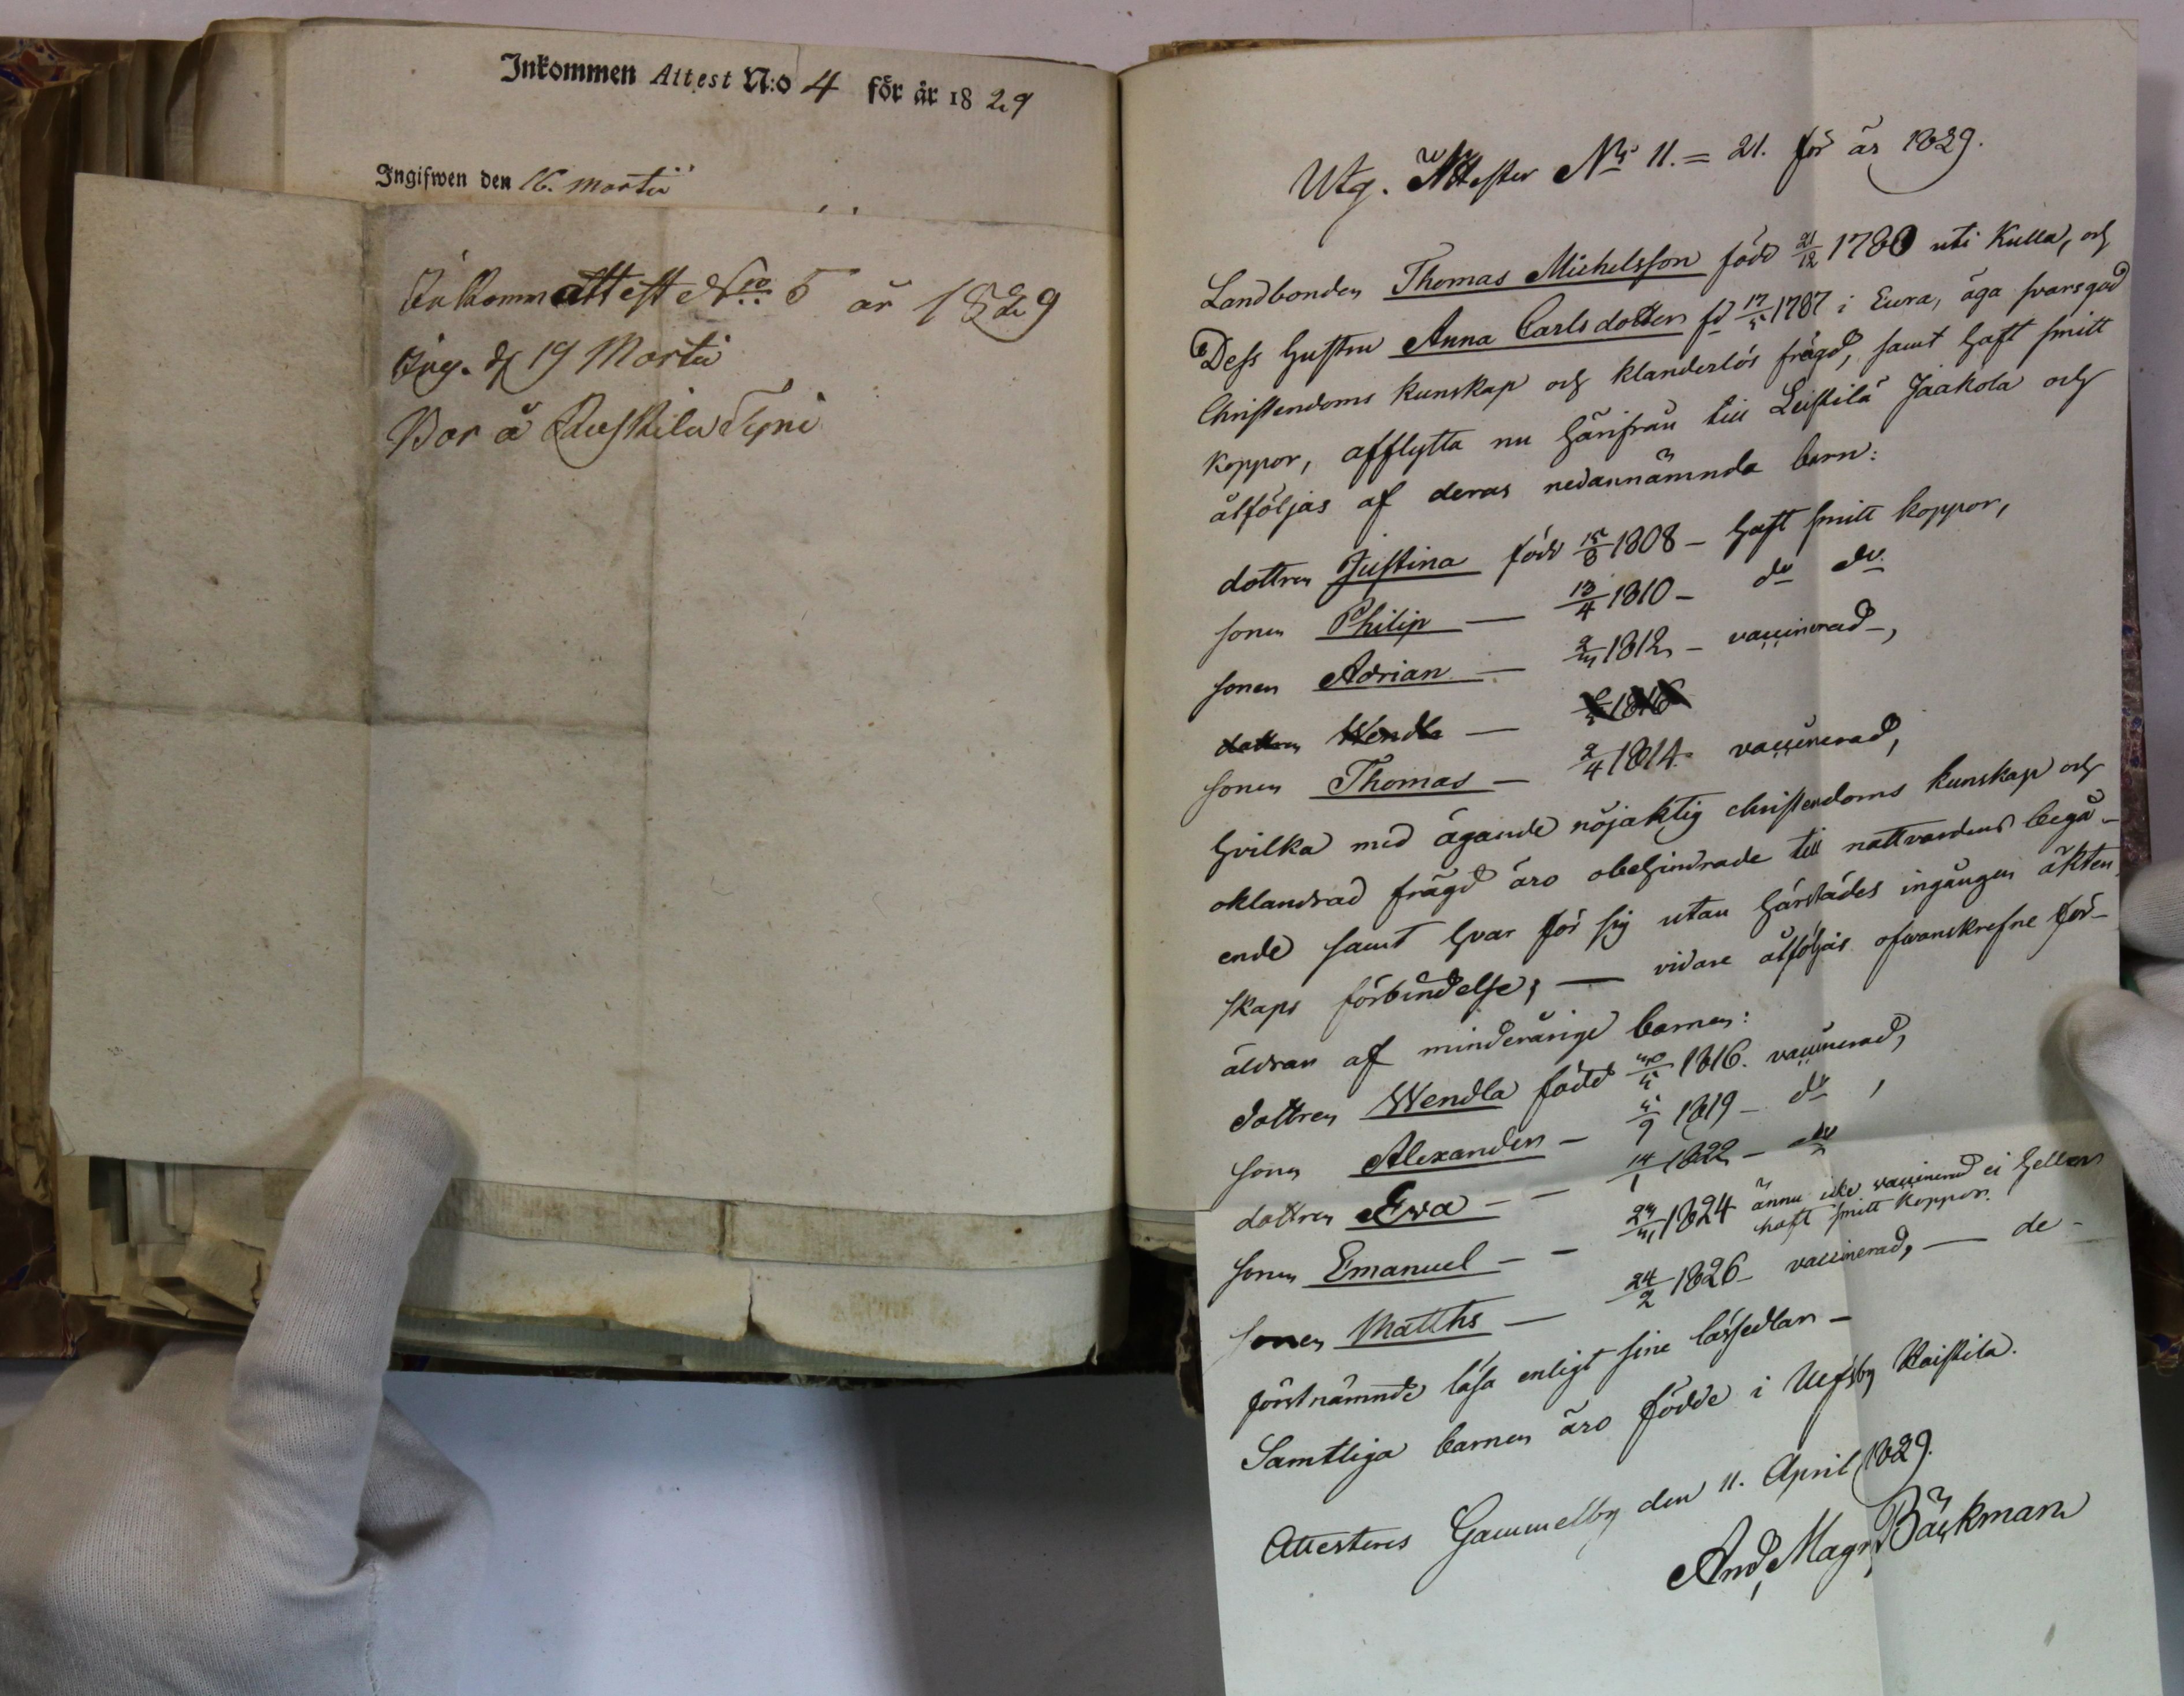 Inkommen Attest N:o 4 för år 1829
Ingifwen den 16. Martii
Inkomm attest No 5 år 1829
Ing. d 19 Martii
Bor å Ruskila Tyni
Utg. Attester No 11. = 21. för år 1829.
Landbonden Thomas Michelsson född 21/12 1780 uti Kulla, och
Dess hustru Anna Carlsdotter fd 17/5 1787 i Eura, äga svarsgod
Christendoms kunskap och klanderlös frägd, samt haft smitt
koppor, afflytta nu härifrån till Leistilä Jaakola och
åtföljas af deras nedannämnda barn:
dottren Justina född 15/8 1808 – haft smitt koppor,
sonen Philip — 13/4 1810 – do do
sonen Adrian — 1812 – vaccinerad –,
dottren Wendla —
sonen Thomas — 2/4 1814. vaccinerad,
hvilka med ägande nöjaktig christendoms kunskap och
oklandrad frägd äro obehindrade till nattvardens begå-
ende samt hvar för sig utan härstädes ingången äkten
skaps förbindelse; — vidare åtföljas ofvanskrefne för-
äldrar af minderårige barnen:
dottren Wendla född 1816. vaccinerad,
sonen Alexander – 5/9 1819 – do ,
dottren Eva – – 14/1 1822 – do
sonen Emanuel – – 1824 ännu icke vaccinerad ei heller
haft smitt koppor.
sonen Matths — 24/2 1826 – vaccinerad, — de-
förstnämnde läsa enligt sine lässedlar –
Samtliga barnen äro födde i Ulfsby Raistila.
Attesteras Gammelby den 11. April 1829.
And. Magn. Bäckman